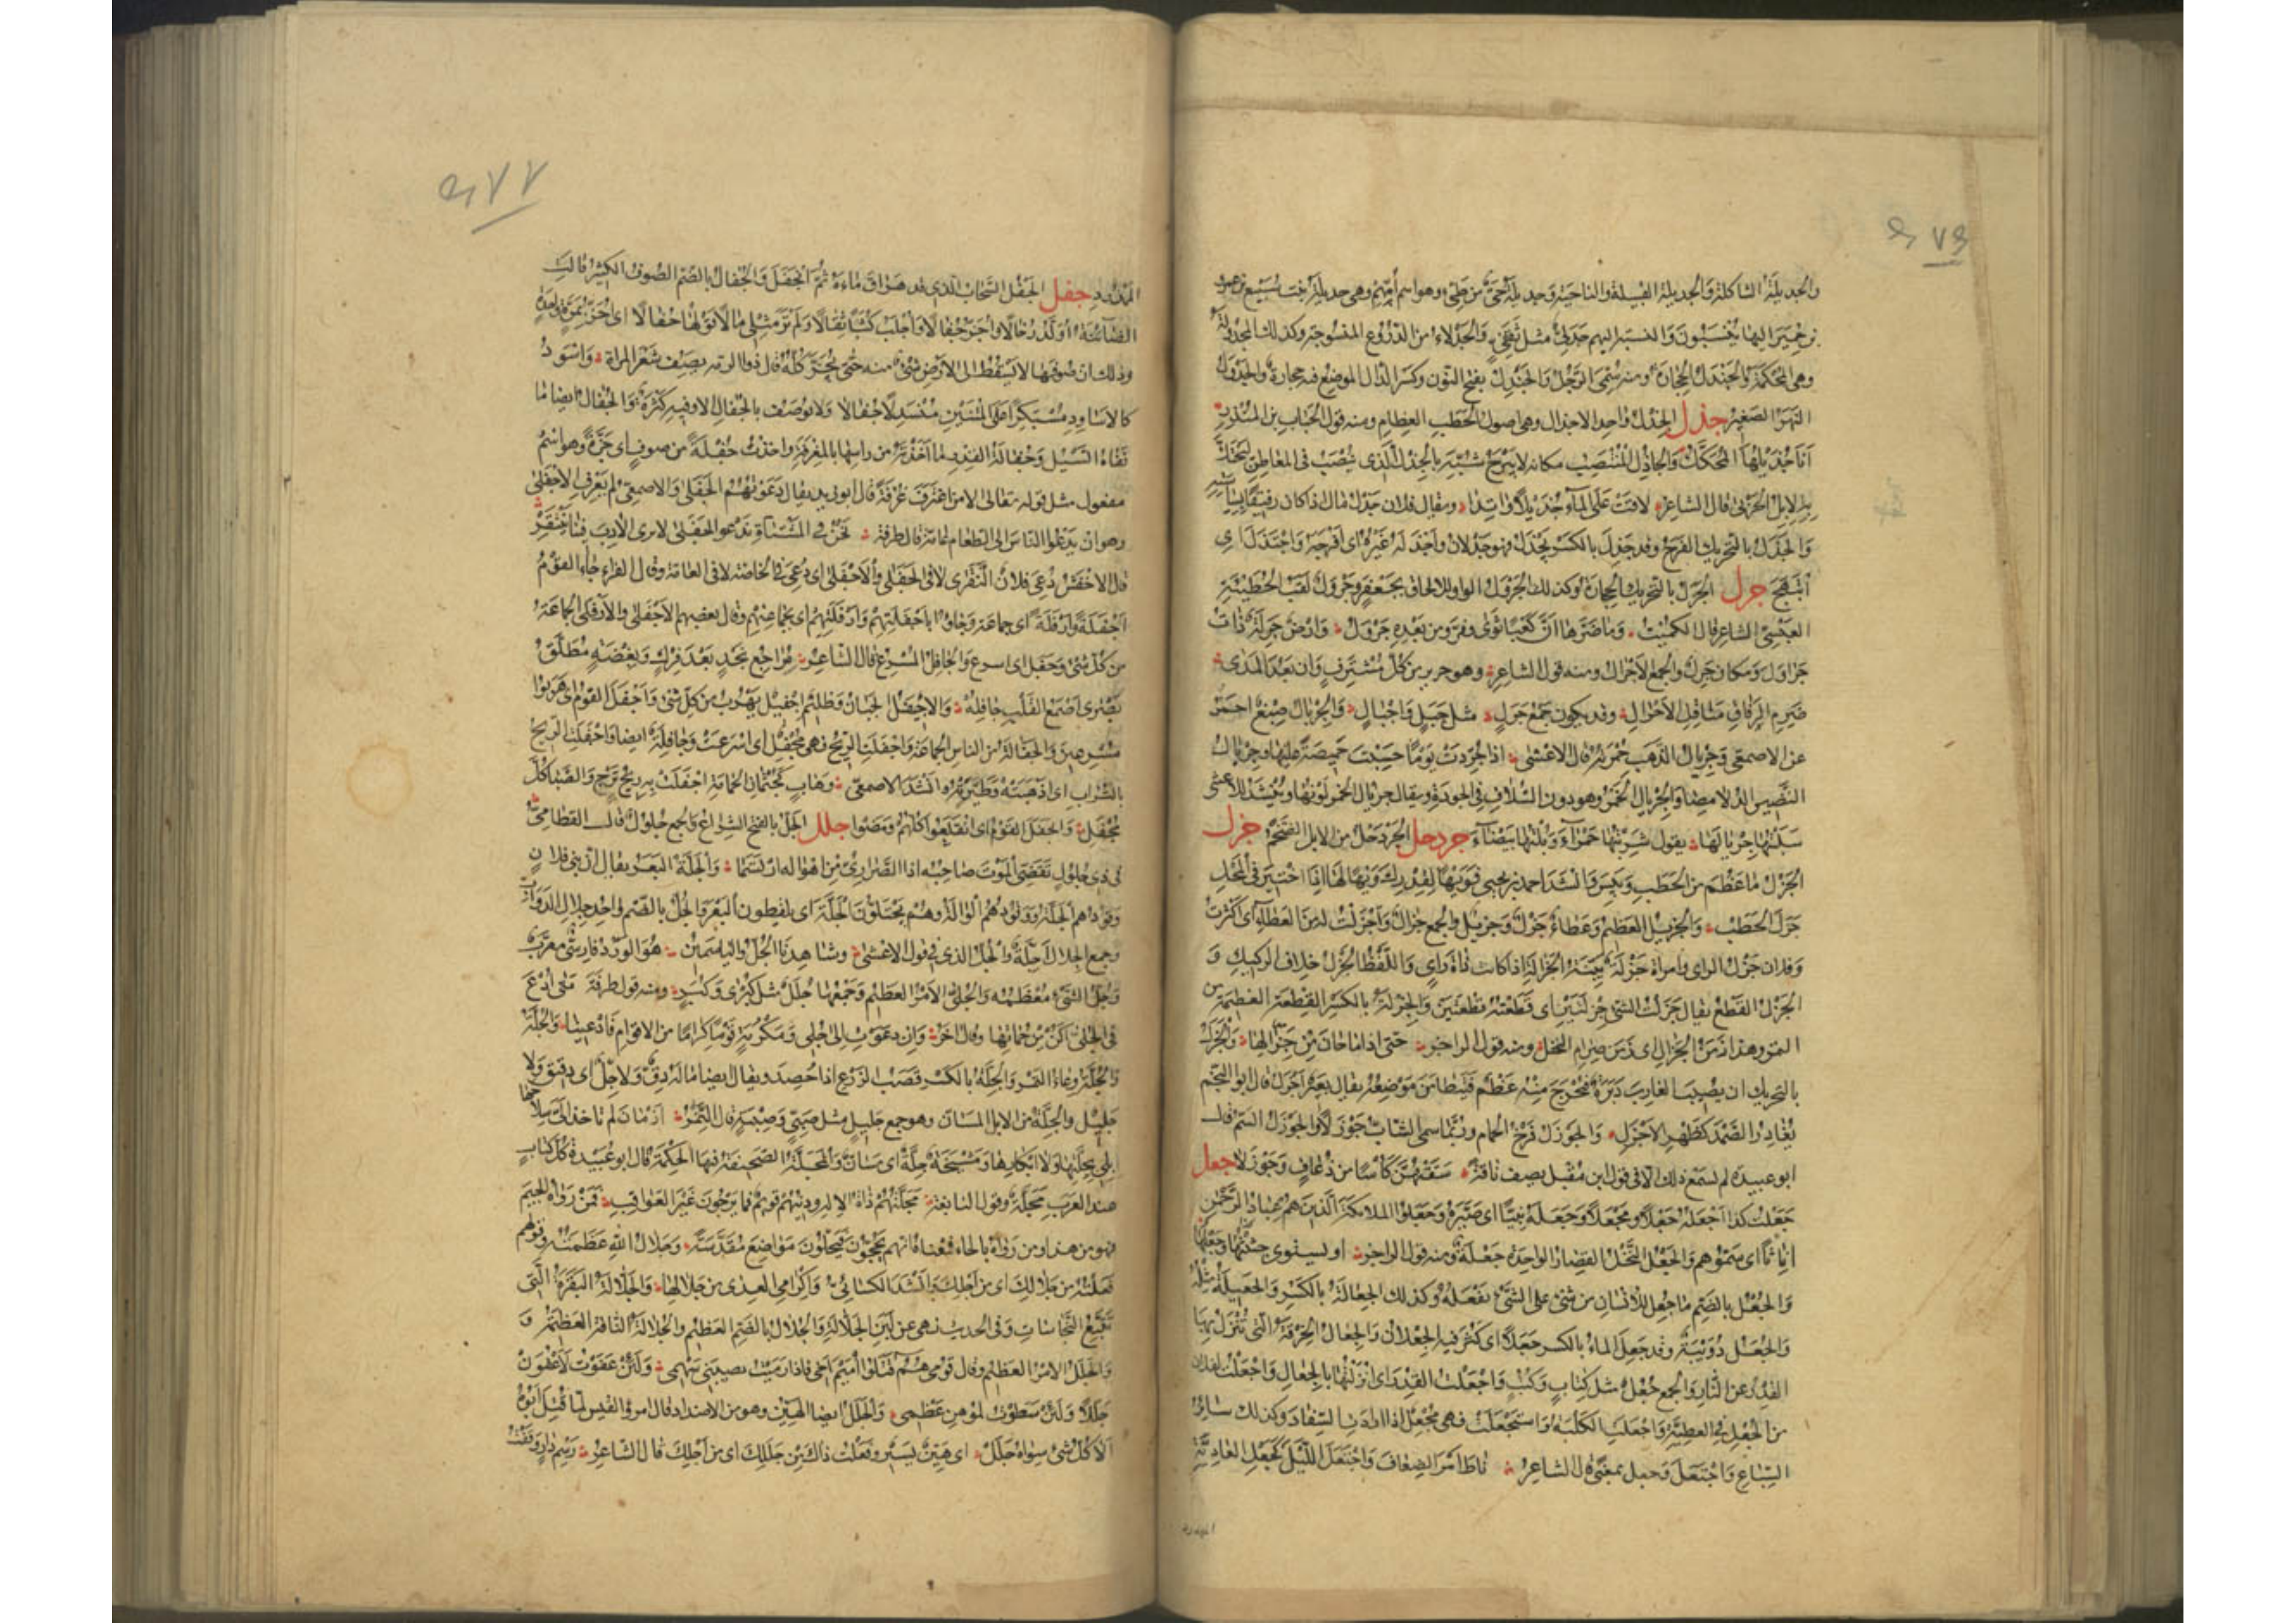 والجديلة الشاكلة والجديلة القبيلة والناحية وجديلة حى من طيئ وهو اسم أمهم وهى جديلة بنت سبيع بن عمرو
بن حمير اليها ينسبون والنسبة اليهم جدلى مثل ثقفى والجدلاء من الدروع المنسوجة وكذلك المجدولة
وهى المحكمة والجندل الحجارة ومنه سمى الرجل والجندل بفتح النون وكسر الدال الموضع فيه حجارة والجدول
النهر الصغير جذل الجذل واحد الاجذال وهى اصول الحطب العظام ومنه قول الحباب بن المنذر
أنا جذيلها المحكك والجاذل المنتصب مكانه لا يبرح شبه بالجذل الذى ينصب فى المعاطن لتحتك
به الابل الجربى قال الشاعر لاقت على الماء جذيلا واتدا ويقال فلان جذل مال اذا كان رفيقا بسياسته
والجذل بالتحريك الفرح وقد جذل بالكسر يجذل فهو جذلان وأجذله غيره اى افرحه واجتذل اى
ابتهج جرل الجرل بالتحريك الحجارة وكذلك الجرول الواو للالحاق بجعفر وجرول لقب الحطيئة
العبسى الشاعر قال الكميت وما ضرها أن كعبا ثوى وفوز من بعده جرول وارض جرلة ذات
جراول ومكان جرل والجمع الاجرال ومنه قول الشاعر وهو جرير من كل مشترف وان بعد المدى
ضرم الرقاق مناقل الاجرال وقد يكون جمع جرل مثل جبل واجبال والجريال صبغ احمر
عن الاصمعى وجريال الذهب حمرته قال الاعشى اذا جردت يوما حسبت خميصة عليها وجريال
النضير الدلامصا والجريال الخمر وهو دون السلاف فى الجودة ويقال جريال الخمر لونها وينشد للاعشى
سلبتها جريالها يقول شربتها حمراء وبلتها بيضاء جردحل الجردحل من الابل الضخم جزل
الجزل ما عظم من الحطب ويبس وانشد احمد بن يحيى فويها لقدرك ويها لها اذا اختير فى المحل
جزل الحطب والجزيل العظيم وعطاء جزل وجزيل والجمع جزال واجزلت له من العطاء اى اكثرت
وفلان جزل الراى وامراة جزلة بينة الجزالة اذا كانت ذات راى واللفظ الجزل خلاف الركيك و
الجزل القطع يقال جزلت الشئ جزلتين اى قطعته قطعتين والجزلة بالكسر القطعة العظيمة من
التمر وهذا زمن الجزال اى زمن صرام النخل ومنه قول الراجز حتى اذا ما حان من جزالها والجزل
بالتحريك ان يصيب الغارب دبرة فيخرج منه عظم فيتطامن موضعه يقال بعير اجزل قال ابو النجم
يغادر الصمد كظهر الاجزل والجوزل فرخ الحمام وربما سمى الشاب جوزلا والجوزل السم قال
ابو عبيدة لم نسمع ذلك الا فى قول ابن مقبل يصف ناقة سقتهن كأسا من ذعاف وجوزلا جعل
جعلت كذا اجعله جعلا ومجعلا وجعله نبيا اى صيره وجعلوا الملائكة الذين هم عباد الرحمن
اناثا اى سموهم والجعل النخل القصار الواحدة جعلة ومنه قول الراجز او يستوى جثيثها وجعلها
والجعل بالضم ما جعل للانسان من شئ على الشئ يفعله وكذلك الجعالة بالكسر والجعيلة مثله
والجعل دويبة وقد جعل الماء بالكسر جعلا اى كثر فيه الجعلان والجعال الخرقة التى تنزل بها
القدر عن النار والجمع جعل مثل كتاب وكتب واجعلت القدر اى انزلتها بالجعال واجعلت لفلان
من الجعل فى العطية واجعلت الكلبة واستجعلت فهى مجعل اذا ارادت السفاد وكذلك سائر
السباع واجتعل وجعل بمعنى قال الشاعر ناط امر الضعاف واجتعل الليل كحبل العادية
الممدود جفل الجفل السحاب الذى قد هراق ماءه ثم انجفل والجفال بالضم الصوف الكثير قالت
الضائنة أولد رخالا وأجز جفالا وأحلب كثبا ثقالا ولم تر مثلى مالا قولها جفالا اى اجز بمرة واحدة
وذلك ان صوفها لا يسقط الى الارض شئ منه حتى يجز كله قال ذو الرمة يصف شعر المراة واسود
كالاساود مسبكرا على المتنين منسدلا جفالا ولا يوصف بالجفال الا وفيه كثرة والجفال ايضا ما
نفاه السيل وجفالة القدر ما اخذته من راسها بالمغرفة واخذت جفلة من صوف اى جزة وهو اسم
مفعول مثل قوله تعالى الا من اغترف غرفة قال ابو زيد يقال دعوتهم الجفلى والاصمعى لم يعرف الاجفلى
وهو ان يدعوا الناس الى الطعام عامة قال طرفة نحن فى المشتاة ندعو الجفلى لا ترى الآدب فينا ينتقر
قال الاخفش دعى فلان النقرى لا فى الجفلى والاجفلى اى دعى فى الخاصة لا فى العامة وقال الفراء جاء القوم
اجفلة وازفلة اى جماعة وجاؤا باجفلتهم وازفلتهم اى بجماعتهم وقال بعضهم الاجفلى والازفلى الجماعة
من كل شئ وجفل اى اسرع والجافل المسرع قال الشاعر مراجع نجد بعد فرك وبغضة مطلق
بصرى اصمع القلب جافله والاجفيل الجبان وظليم اجفيل يهرب من كل شئ واجفل القوم اى هربوا
مسرعين والجفالة من الناس الجماعة واجفلت الريح فهى مجفل اى اسرعت وجافلة ايضا واجفلت الريح
بالتراب اى اذهبته وطيرته وانشد الاصمعى وهاب كجثمان الحمامة اجفلت به ريح ترج والصبا كل
مجفل وانجفل القوم اى انقلعوا كلهم ومضوا جلل الجل بالفتح الشراع والجمع جلول قال القطامى
فى ذى جلول تقضى الموت صاحبه اذا الصرارى من اهواله ارتسما والجلة البعر يقال ان بنى فلان
وقودهم الجلة ووقودهم الوالة وهم يجتلون الجلة اى يلقطون البعر والجل بالضم واحد جلال الدواب
وجمع الجلال اجلة والجل الذى فى قول الاعشى وشاهدنا الجل والياسمين هو الورد فارسى معرب
وجل الشئ معظمه والجلى الامر العظيم وجمعها جلل مثل كبرى وكبر ومنه قول طرفة متى ادع
فى الجلى اكن من حماتها وقال اخر وان دعوت الى جلى ومكرمة قوما كراما من الاقوام فادعينا والجلة
والجلة وعاء التمر والجلة بالكسر قصب الزرع اذا حصد ويقال ايضا ما له دق ولا جل اى دقيق ولا
جليل والجلة من الابل المسان وهو جمع جليل مثل صبى وصبية قال النمر ازمان لم تاخذ الى سلاحها
ابلى بجلتها ولا ابكارها ومشيخة جلة اى مسان والمجلة الصحيفة فيها الحكمة قال ابو عبيدة كل كتاب
عند العرب مجلة وقول النابغة مجلتهم ذات الاله ودينهم قويم فما يرجون غير العواقب فمن رواه بالجيم
فهو من هذا ومن رواه بالحاء فمعناه انهم يحجون فيحلون مواضع مقدسة وجلال الله عظمته وقولهم
فعلته من جلالك اى من اجلك وانشد الكسائى واكرامى العدى من جلالها والجلالة البقرة التى
تتبع النجاسات وفى الحديث نهى عن لبن الجلالة والجلال بالضم العظيم والجلالة الناقة العظيمة و
والجلل الامر العظيم وقال قومى هم قتلوا أميم اخى فاذا رميت يصيبنى سهمى ولئن عفوت لاعفون
جللا ولئن سطوت لموهن عظمى والجلل ايضا الهين وهو من الاضداد قال امرؤ القيس لما قتل ابوه
الا كل شئ سواه جلل اى هين يسير وفعلت ذاك من جللك اى من اجلك قال الشاعر رسم دار وقفت